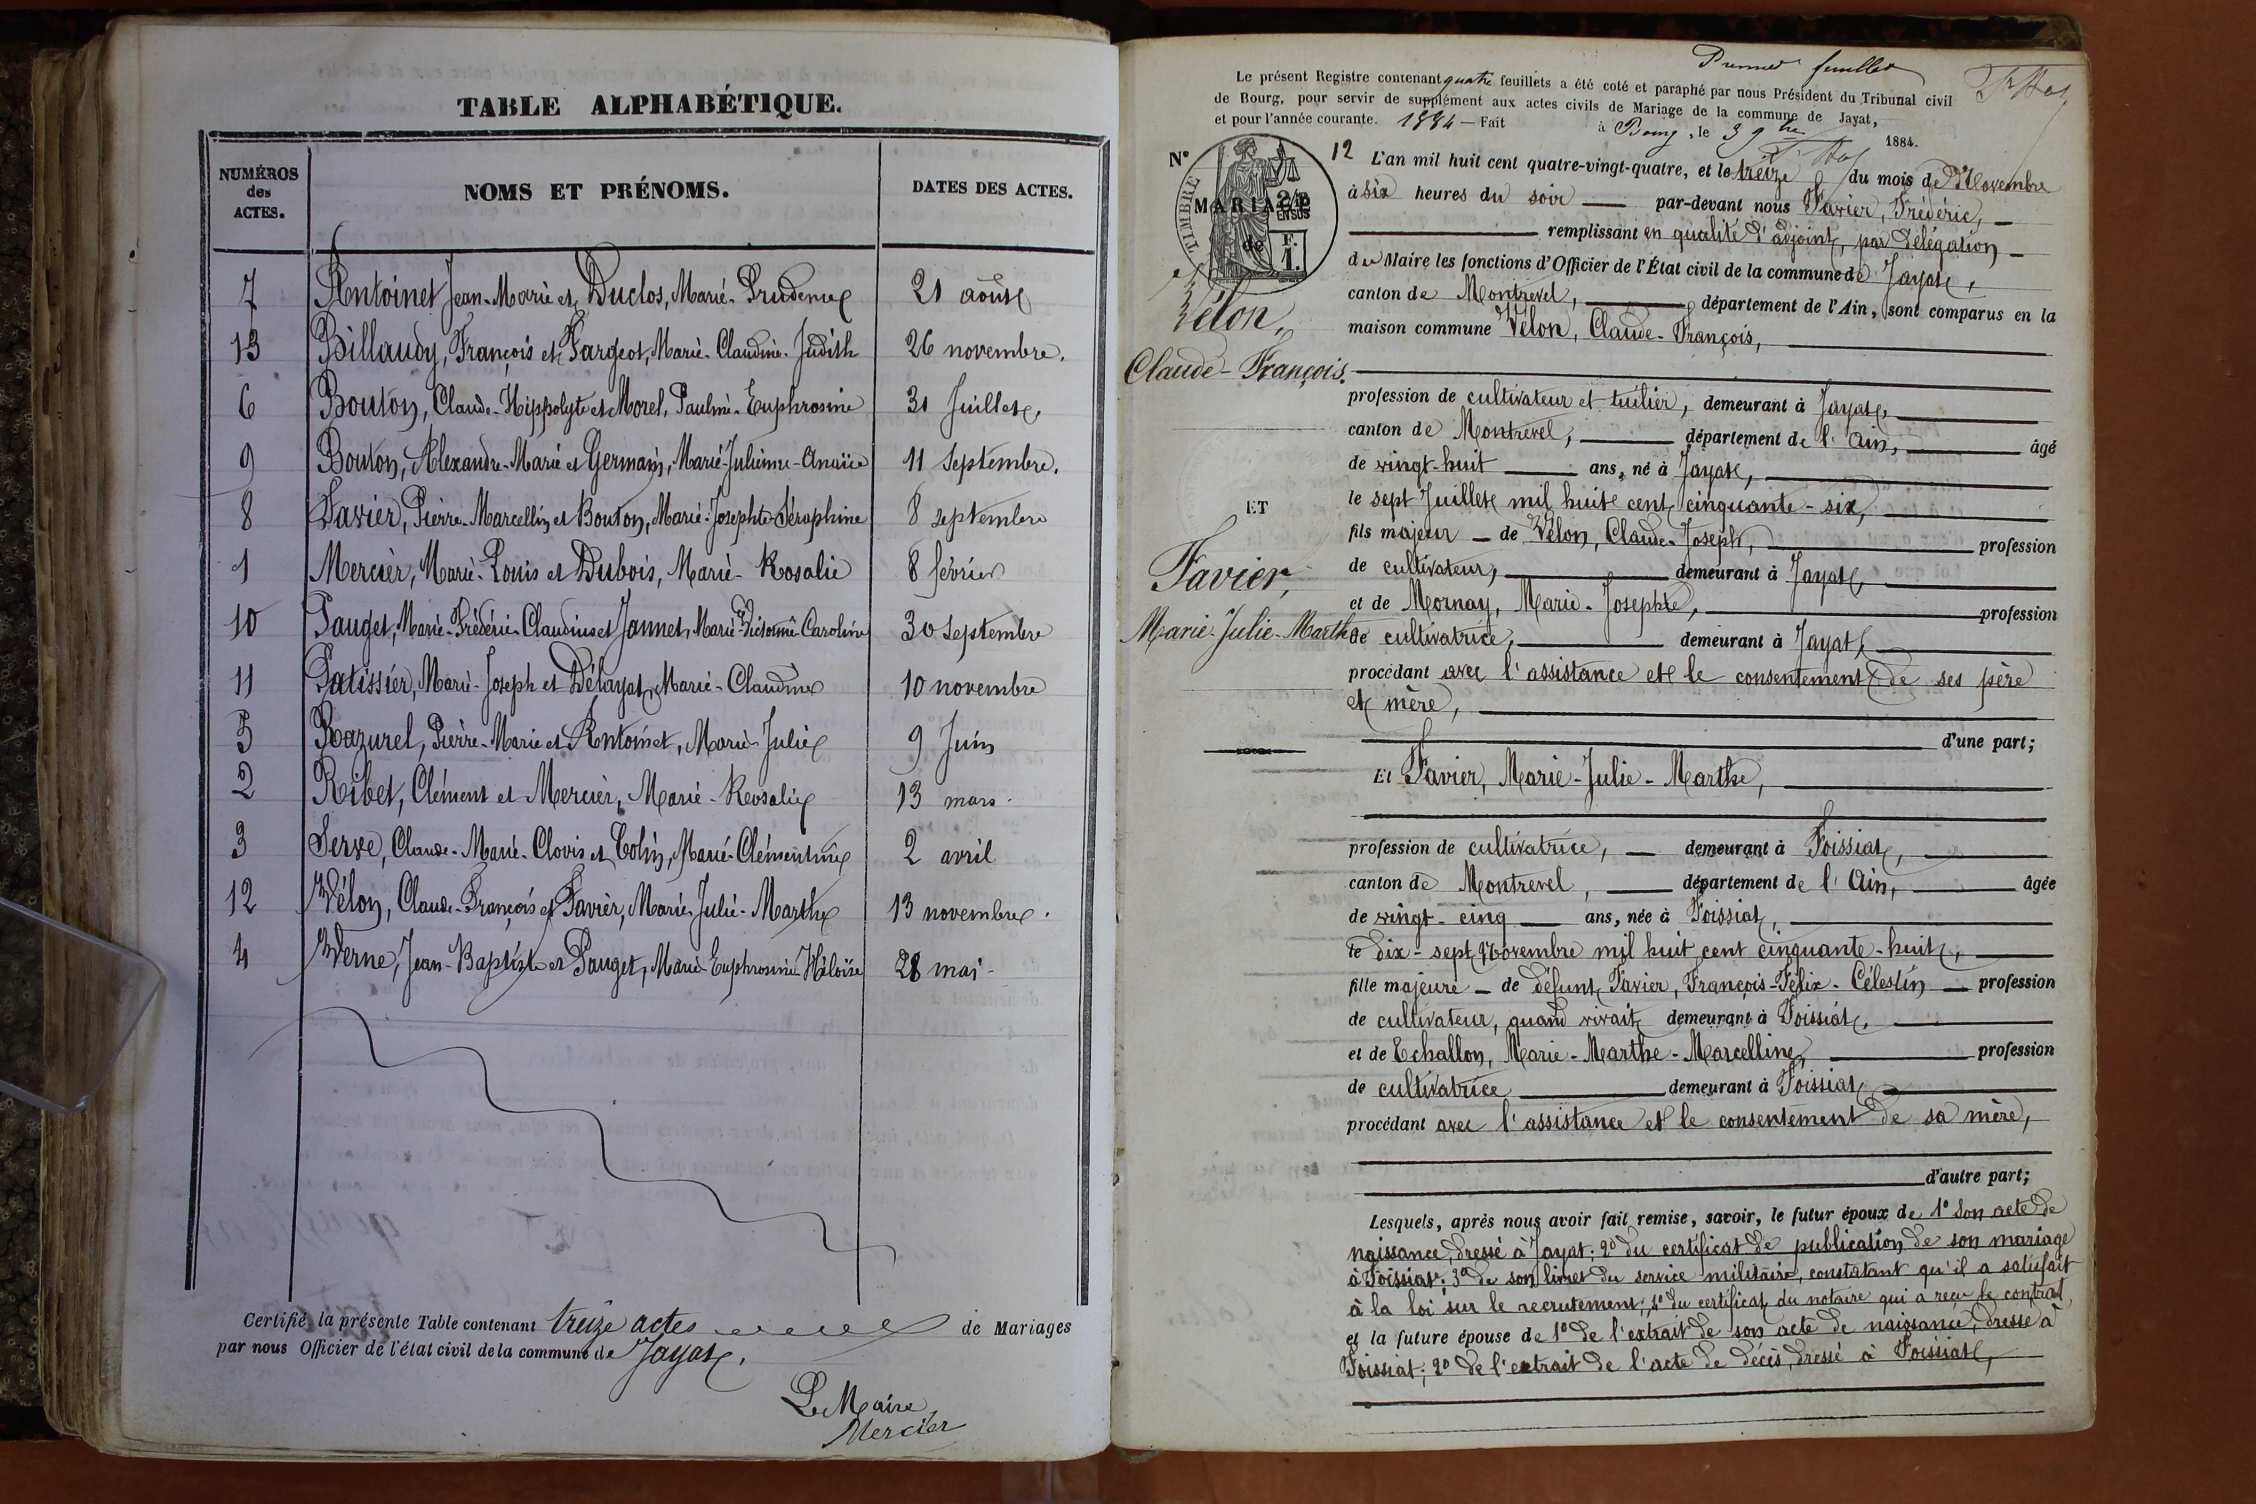 TABLE ALPHABÉTIQUE.
NUMÉROS des ACTES. NOMS ET PRÉNOMS. DATES DES ACTES.
7 Antoinet Jean-Marie et Duclos, Marie-Prudence 21 août
13 Billaudy, François et Fargeot, Marie-Claudine-Judith 26 novembre.
6 Bouton, Claude-Hippolyte et Morel, Pauline-Euphrosine 31 Juillet,
9 Bouton, Alexandre-Marie et Germain, Marie-Julienne-Anaïse 11 Septembre.
8 Favier, Pierre-Marcellin et Bouton, Marie-Josephte-Séraphine 8 septembre
1 Mercier, Marie-Louis et Dubois, Marie-Rosalie 8 février
10 Pauget, Marie-Frédéric-Claudius et Jannet, Marie-Victorine-Caroline 30 Septembre
11 Patissier, Marie-Joseph et Délayat, Marie-Claudine 10 novembre
5 Razurel, Pierre-Marie et Antoinet, Marie-Julie 9 Juin
2 Ribet, Clément et Mercier, Marie-Rosalie 13 mars.
3 Serve, Claude-Marie-Clovis et Colin, Marie-Clémentine 2 avril
12 Vélon, Claude-François et Favier, Marie-Julie-Marthe 13 novembre.
4 Verne, Jean-Baptiste et Pauget, Marie-Euphrosine-Héloïse 28 mai-
Certifié la présente Table contenant treize actes de Mariages
par nous Officier de l'état civil de la commune de Jayat.
Le Maire
Mercier
Premier feuillet
Le présent Registre contenant quatre feuillets a été coté et paraphé par nous Président du Tribunal civil
de Bourg, pour servir de supplément aux actes civils de Mariage de la commune de Jayat,
et pour l'année courante. 1884 — Fait à Bourg, le 3 9bre 1884.
N° 12
TIMBRE
2/10 EN SUS
F. 1.
MARIAGE
de
Vélon,
Claude-François.
ET
Favier,
Marie-Julie-Marthe
L'an mil huit cent quatre-vingt-quatre, et le treize du mois de Novembre
à six heures du soir — par-devant nous Favier, Frédéric, —
remplissant en qualité d'adjoint, par délégation —
du Maire les fonctions d'Officier de l'État civil de la commune de Jayat,
canton de Montrevel, département de l'Ain, sont comparus en la
maison commune Vélon, Claude-François,
profession de cultivateur et tuilier, demeurant à Jayat,
canton de Montrevel, département de l'Ain, âgé
de vingt-huit ans, né à Jayat,
le sept Juillet mil huit cent cinquante-six,
fils majeur — de Vélon, Claude-Joseph, profession
de cultivateur, demeurant à Jayat,
et de Mornay, Marie-Josephte, profession
de cultivatrice, demeurant à Jayat,
procédant avec l'assistance et le consentement de ses père
et mère,
d'une part;
Et Favier, Marie-Julie-Marthe,
profession de cultivatrice, — demeurant à Foissiat,
canton de Montrevel, département de l'Ain, âgée
de vingt-cinq ans, née à Foissiat,
le dix-sept Novembre mil huit cent cinquante-huit,
fille majeure — de défunt Favier, François-Félix-Célestin — profession
de cultivateur, quand vivait demeurant à Foissiat,
et de Echallon, Marie-Marthe-Marcelline, profession
de cultivatrice demeurant à Foissiat
procédant avec l'assistance et le consentement de sa mère,
d'autre part;
Lesquels, après nous avoir fait remise, savoir, le futur époux de 1° Son acte de
naissance, dressé à Jayat; 2° du certificat de publication de son mariage
à Foissiat; 3° de son livret du service militaire, constatant qu'il a satisfait
à la loi sur le recrutement; 4° du certificat du notaire qui a reçu le contrat,
et la future épouse de 1° de l'extrait de son acte de naissance, dressé à
Foissiat; 2° de l'extrait de l'acte de décès, dressé à Foissiat,